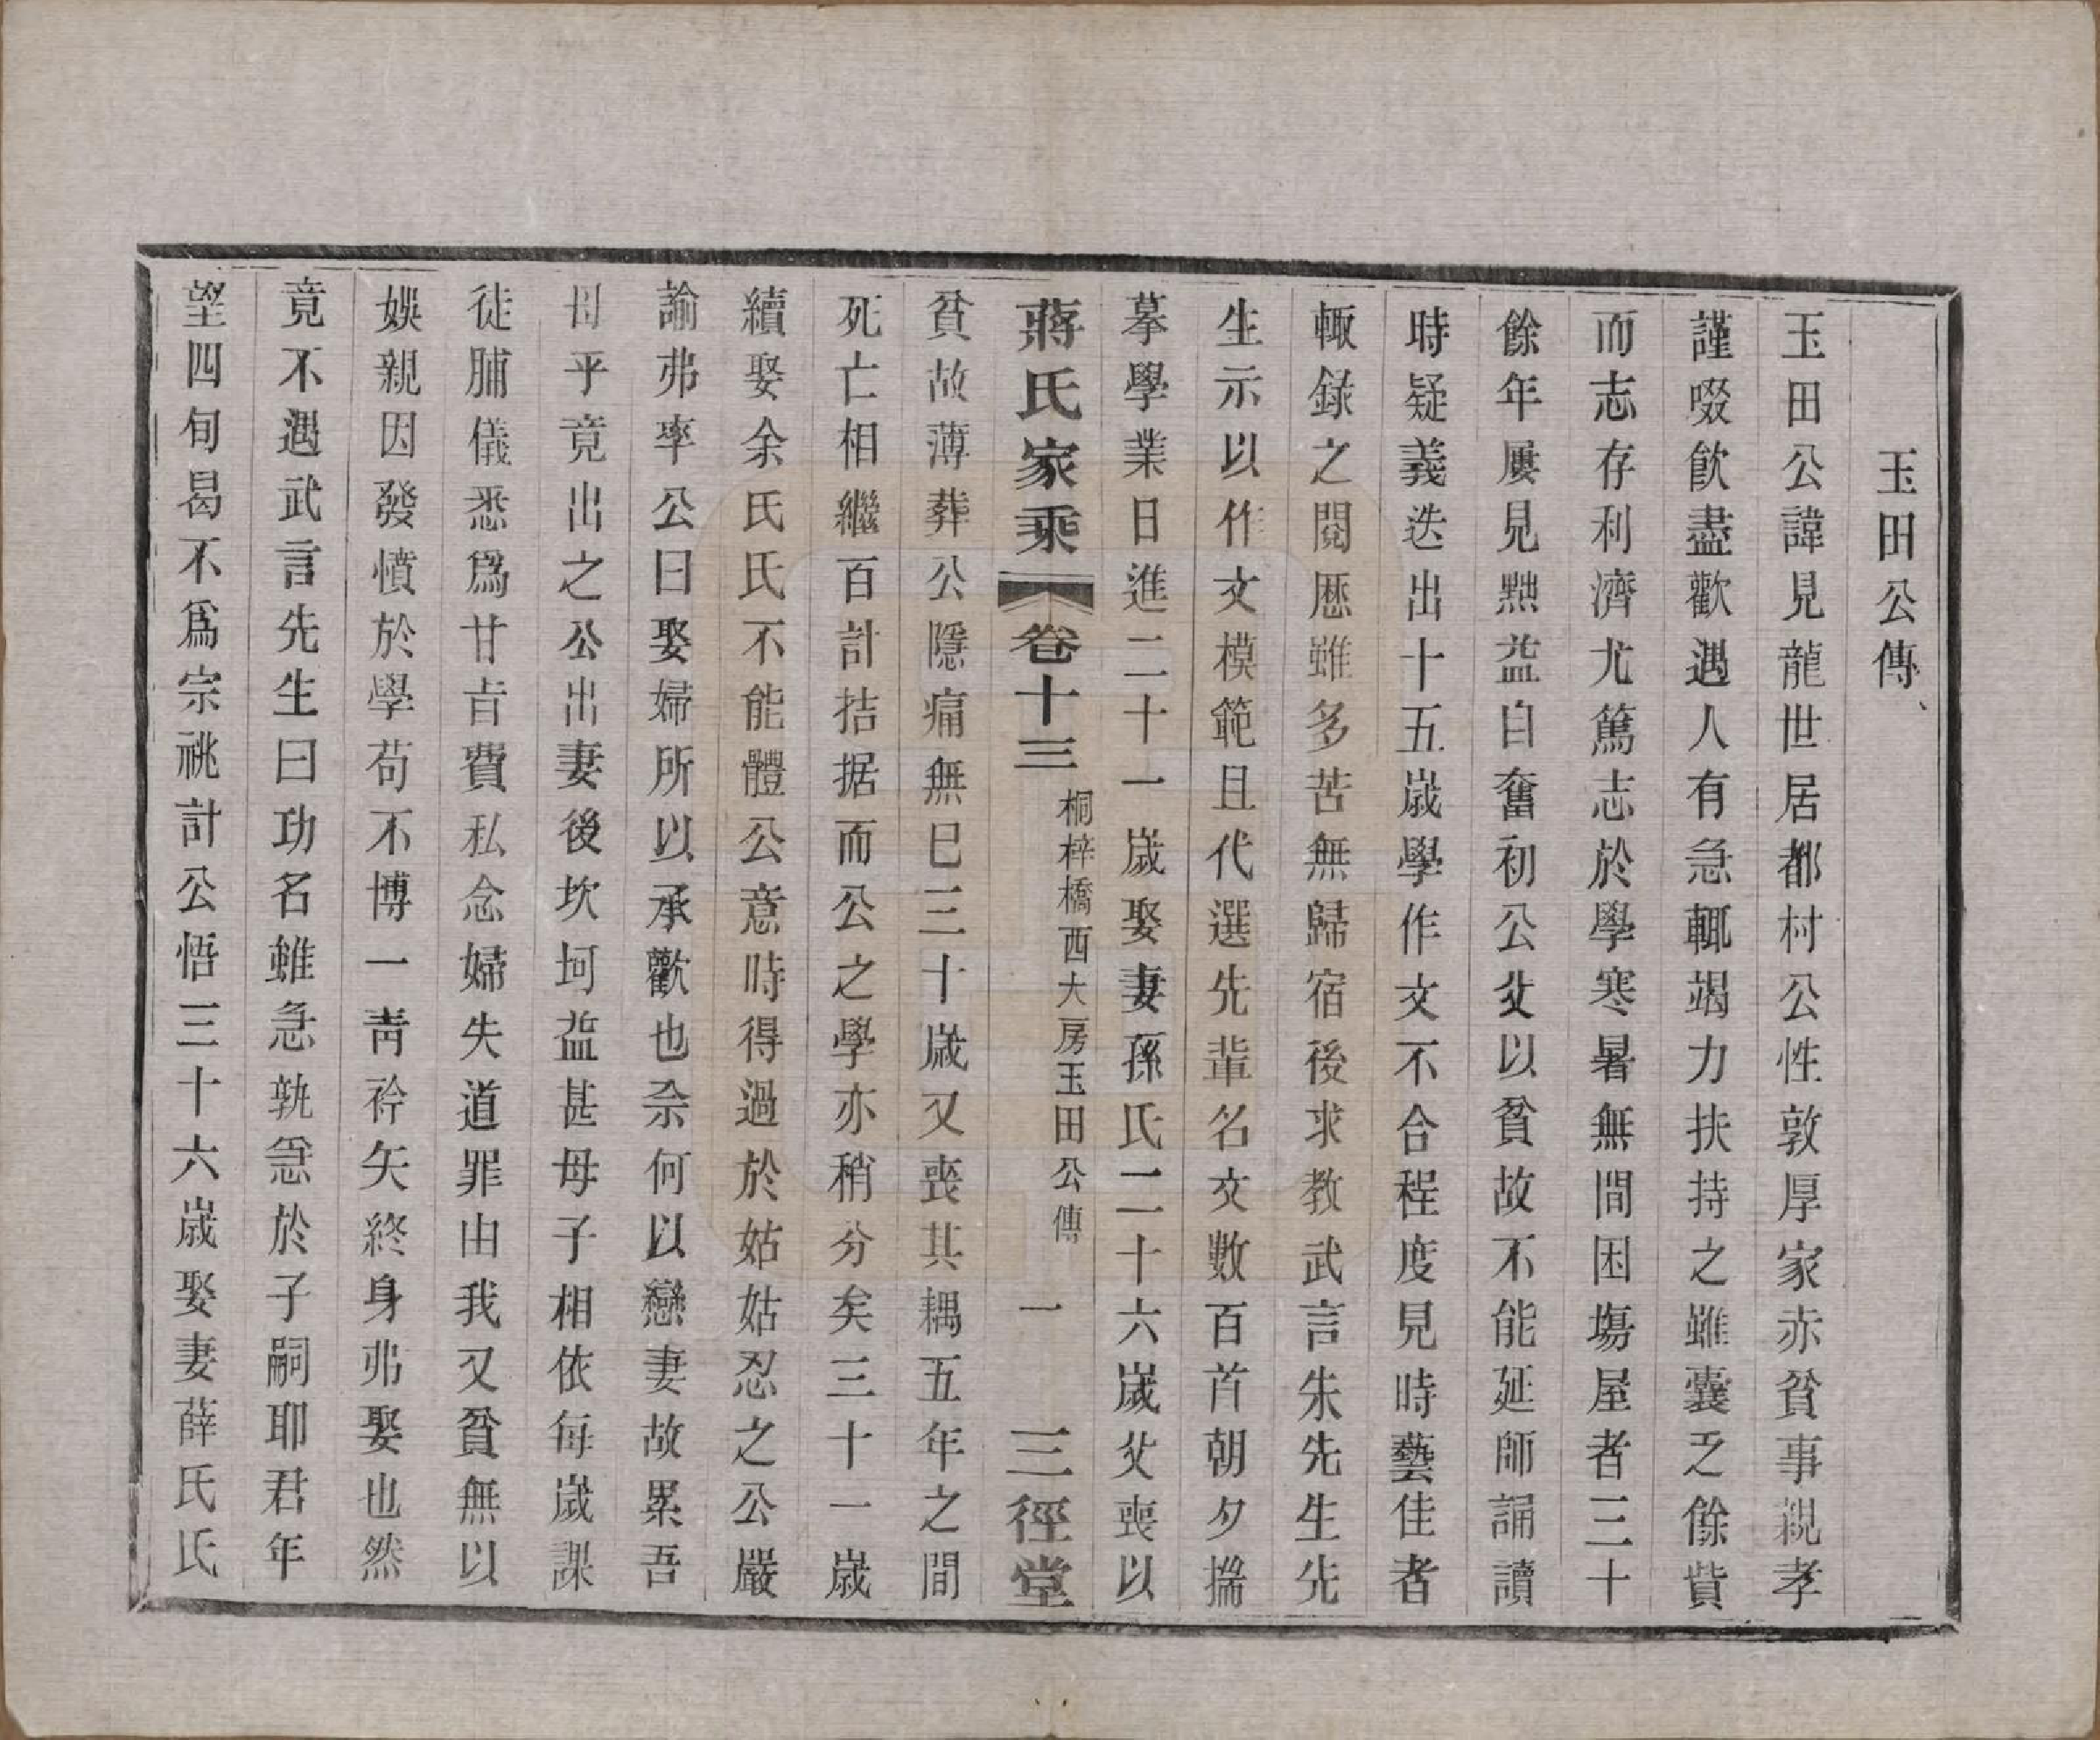 玉田公傳
玉田公諱見龍世居都村公性敦厚家赤貧事親孝
謹啜飲盡歡遇人有急輒竭力扶持之雖囊乏餘貲
而志存利濟尤篤志於學寒暑無間困塲屋者三十
餘年屢見黜益自奮初公父以貧故不能延師誦讀
時疑義迭出十五歲學作文不合程度見時藝佳者
輙錄之閱歷雖多苦無歸宿後求教武言朱先生先
生示以作文模範且代選先輩名文數百首朝夕揣
摹學業日進二十一歲娶妻孫氏二十六歲父喪以
蔣氏家乘 卷十三 桐梓橋西大房玉田公傳 一 三徑堂
貧故薄葬公隱痛無巳三十歲又喪其耦五年之間
死亡相繼百計拮据而公之學亦稍分矣三十一歲
續娶余氏氏不能體公意時得過於姑姑忍之公嚴
諭弗率公曰娶婦所以承歡也余何以戀妻故累吾
母乎竟出之公出妻後坎坷益甚母子相依每歲課
徒脯儀悉爲甘旨費私念婦失道罪由我又貧無以
娛親因發憤於學苟不博一靑衿矢終身弗娶也然
竟不遇武言先生曰功名雖急孰急於子嗣耶君年
望四旬曷不爲宗祧計公悟三十六歲娶妻薛氏氏